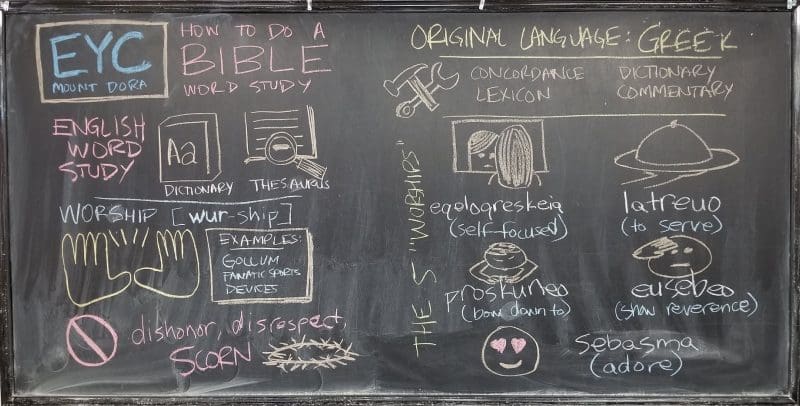 EYC
MOUNT DORA
HOW TO DO A
BIBLE
WORD STUDY
ENGLISH
WORD
STUDY
Aa
DICTIONARY
THESAURUS
WORSHIP [wur-ship]
EXAMPLES:
GOLLUM
FANATIC SPORTS
DEVICES
dishonor, disrespect,
SCORN
ORIGINAL LANGUAGE: GREEK
CONCORDANCE
LEXICON
DICTIONARY
COMMENTARY
THE 5 "WORSHIPS"
eqologreskeia
(self-focused)
latreuo
(to serve)
proskuneo
(bow down to)
eusebeo
(show reverence)
sebasma
(adore)